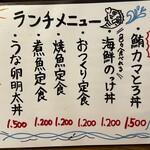 ランチメニュー
鮪カマとろ丼 1,500
海鮮のっけ丼 1,200
おつくり定食 1,200
焼魚定食 1,200
煮魚定食 1,200
うな卵明太丼 1,500